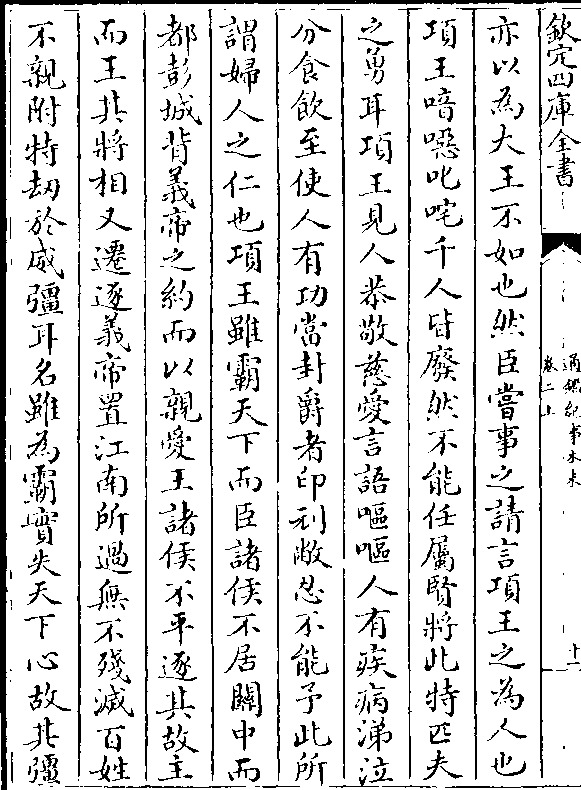 欽定四庫全書
通鑑紀事本末
卷二上
十一
亦以為大王不如也然臣嘗事之請言項王之為人也
項王喑噁叱咤千人皆廢然不能任屬賢將此特匹夫
之勇耳項王見人恭敬慈愛言語嘔嘔人有疾病涕泣
分食飲至使人有功當封爵者印刓敝忍不能予此所
謂婦人之仁也項王雖霸天下而臣諸侯不居關中而
都彭城背義帝之約而以親愛王諸侯不平逐其故主
而王其將相又遷逐義帝置江南所過無不殘滅百姓
不親附特劫於威彊耳名雖為霸實失天下心故其彊